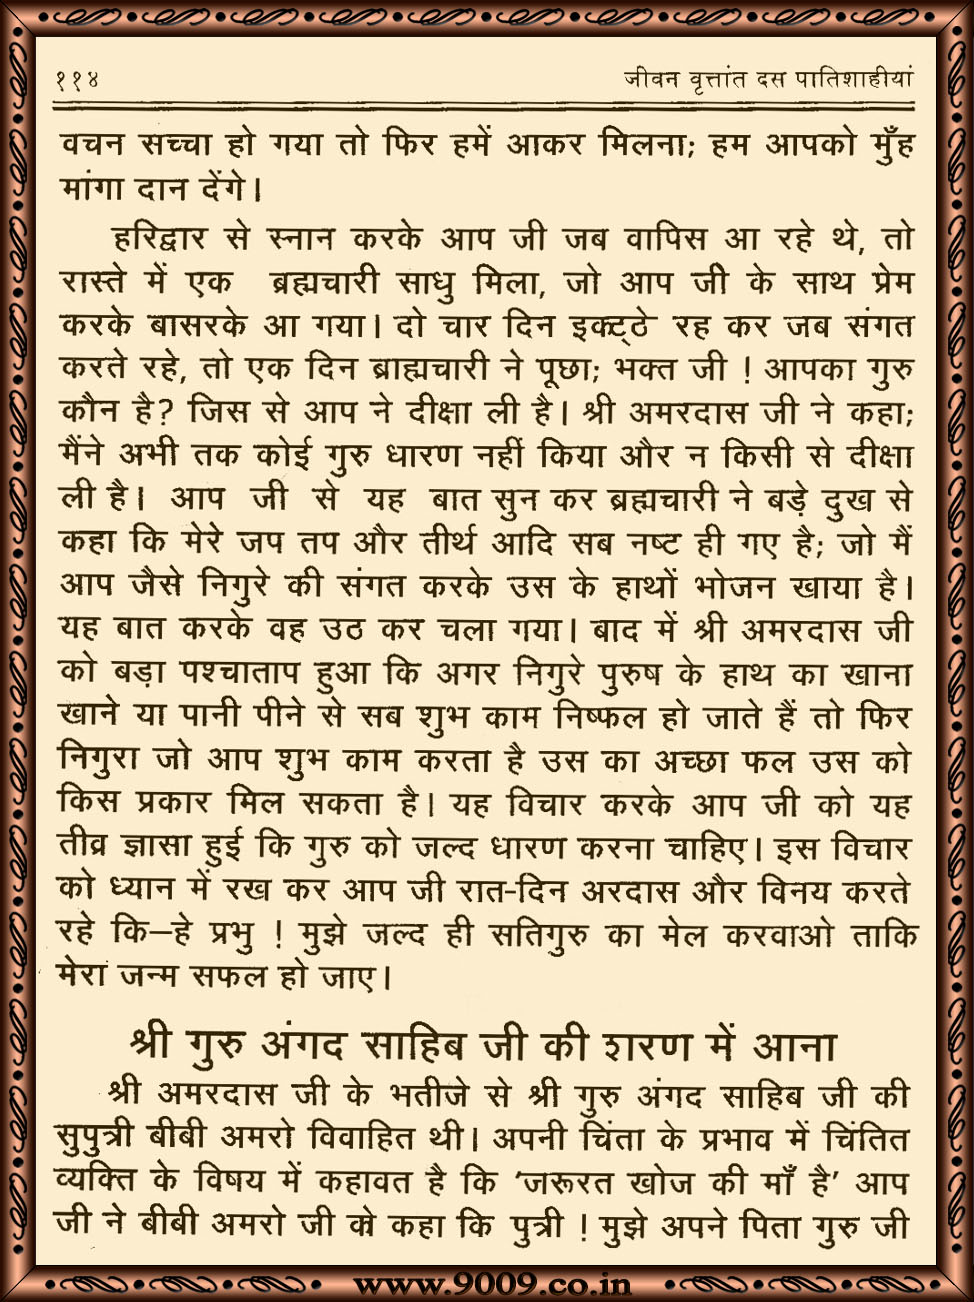 ११४ जीवन वृत्तांत दस पातिशाहीयां
वचन सच्चा हो गया तो फिर हमें आकर मिलना; हम आपको मुँह
मांगा दान देंगे।
हरिद्वार से स्नान करके आप जी जब वापिस आ रहे थे, तो
रास्ते में एक ब्रह्मचारी साधु मिला, जो आप जी के साथ प्रेम
करके बासरके आ गया। दो चार दिन इकट्ठे रह कर जब संगत
करते रहे, तो एक दिन ब्राह्मचारी ने पूछा; भक्त जी ! आपका गुरु
कौन है? जिस से आप ने दीक्षा ली है। श्री अमरदास जी ने कहा;
मैंने अभी तक कोई गुरु धारण नहीं किया और न किसी से दीक्षा
ली है। आप जी से यह बात सुन कर ब्रह्मचारी ने बड़े दुख से
कहा कि मेरे जप तप और तीर्थ आदि सब नष्ट ही गए है; जो मैं
आप जैसे निगुरे की संगत करके उस के हाथों भोजन खाया है।
यह बात करके वह उठ कर चला गया। बाद में श्री अमरदास जी
को बड़ा पश्चाताप हुआ कि अगर निगुरे पुरुष के हाथ का खाना
खाने या पानी पीने से सब शुभ काम निष्फल हो जाते हैं तो फिर
निगुरा जो आप शुभ काम करता है उस का अच्छा फल उस को
किस प्रकार मिल सकता है। यह विचार करके आप जी को यह
तीव्र ज्ञासा हुई कि गुरु को जल्द धारण करना चाहिए। इस विचार
को ध्यान में रख कर आप जी रात-दिन अरदास और विनय करते
रहे कि—हे प्रभु ! मुझे जल्द ही सतिगुरु का मेल करवाओ ताकि
मेरा जन्म सफल हो जाए।
श्री गुरु अंगद साहिब जी की शरण में आना
श्री अमरदास जी के भतीजे से श्री गुरु अंगद साहिब जी की
सुपुत्री बीबी अमरो विवाहित थी। अपनी चिंता के प्रभाव में चिंतित
व्यक्ति के विषय में कहावत है कि ‘जरूरत खोज की माँ है’ आप
जी ने बीबी अमरो जी को कहा कि पुत्री ! मुझे अपने पिता गुरु जी
www.9009.co.in